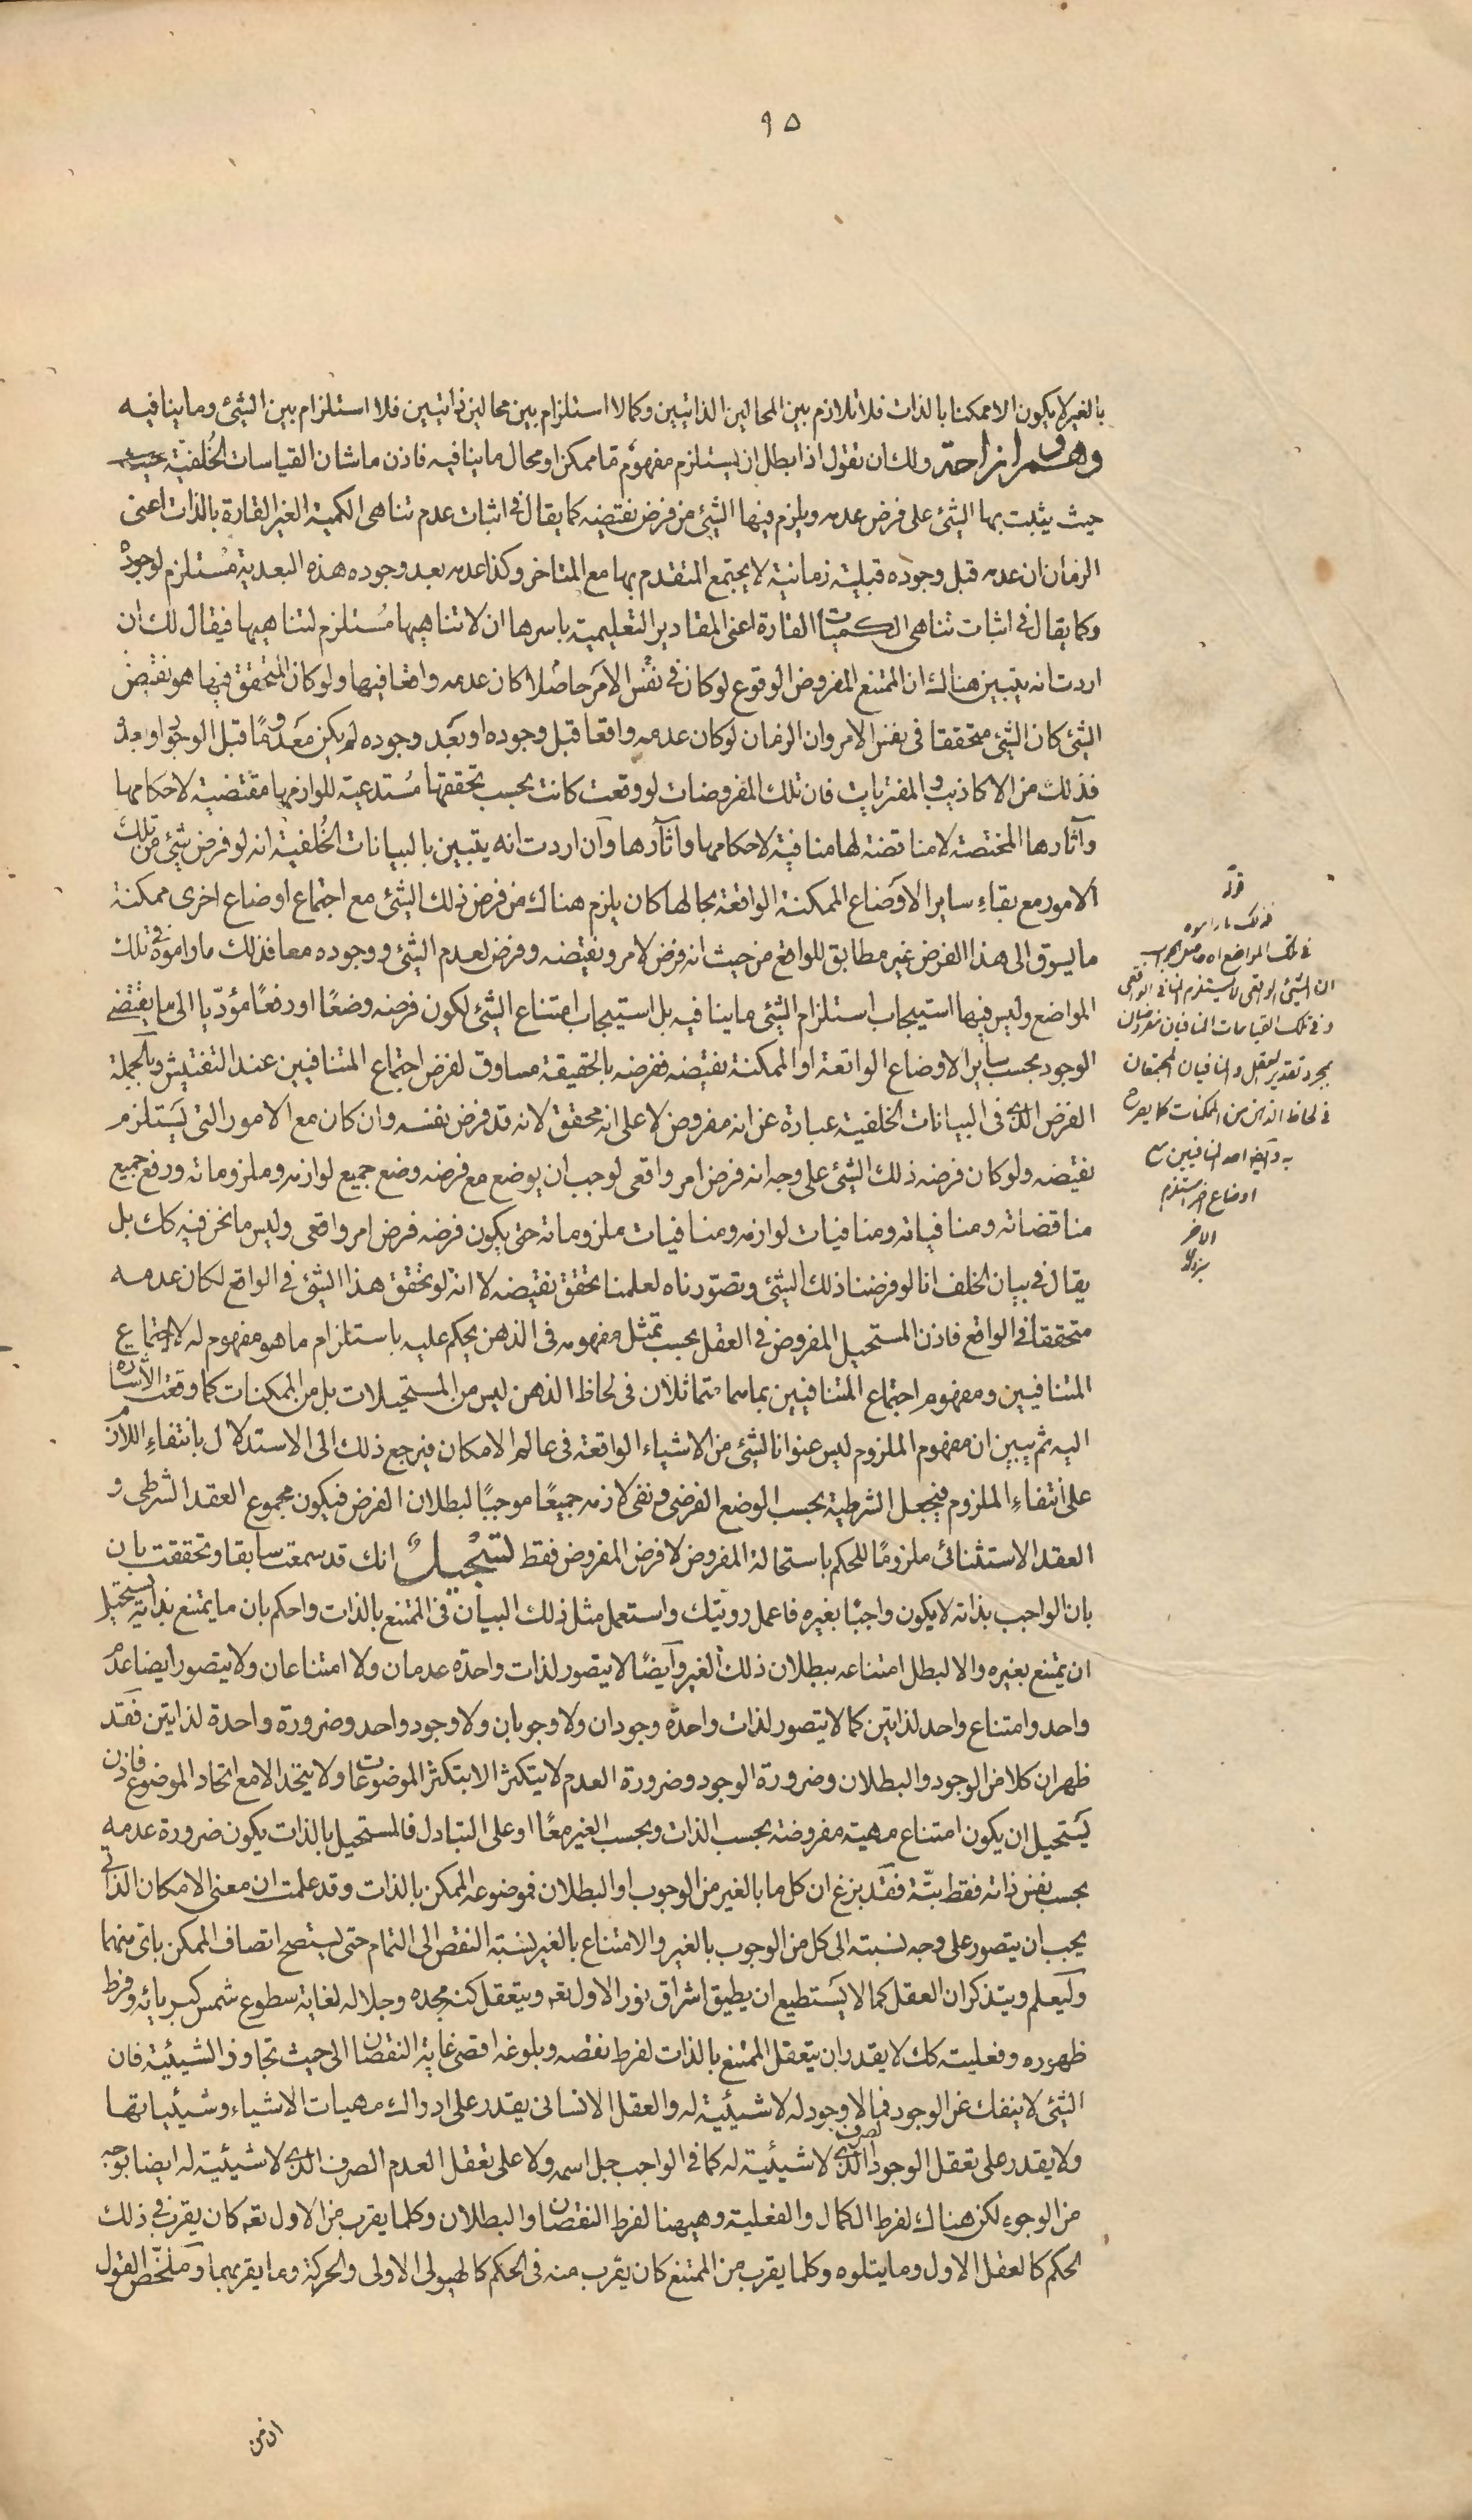 ٩٥
بالغير لا يكون الا ممكنا بالذات فلا تلازم بين المحالين الذاتيين وكما لا استلزام بين محالين ذاتيين فلا استلزام بين الشئ وما ينافيه
وهم وازاحة ولك ان تقول اذا بطل ان يستلزم مفهوم ما ممكن او محال ما ينافيه فاذن ما شان القياسات الخلفية
حيث يثبت بها الشئ على فرض عدمه ويلزم فيها الشئ من فرض نقيضه كما يقال في اثبات عدم تناهى الكمية الغير القارة بالذات اعنى
الزمان ان عدمه قبل وجوده قبلية زمانية لا يجتمع المتقدم بها مع المتاخر وكذا عدمه بعد وجوده هذه البعدية مستلزم لوجوده
وكما يقال في اثبات تناهى الكميات القارة اعنى المقادير التعليمية باسرها ان لا تناهيها مستلزم لتناهيها فيقال لك ان
اردت انه يتبين هناك ان الممتنع المفروض الوقوع لو كان في نفس الامر حاصلا كان عدمه واقعا فيها ولو كان المتحقق فيها هو نقيض
الشئ كان الشئ متحققا فى نفس الامر وان الزمان لو كان عدمه واقعا قبل وجوده او بعد وجوده لم يكن معدوما قبل الوجود او بعده
فذلك من الاكاذيب والمفتريات فان تلك المفروضات لو وقعت كانت بحسب تحققها مستدعية للوازمها مقتضية لاحكامها
وآثارها المختصة لا مناقضة لها منافية لاحكامها وآثارها وان اردت انه يتبين بالبيانات الخلفية انه لو فرض شئ من تلك
الامور مع بقاء ساير الاوضاع الممكنة الواقعة بحالها كان يلزم هناك من فرض ذلك الشئ مع اجتماع اوضاع اخرى ممكنة
ما يسوق الى هذا الفرض غير مطابق للواقع من حيث انه فرض لامر ونقيضه وفرض لعدم الشئ ووجوده معا فذلك ما راموه فى تلك
المواضع وليس فيها استيجاب استلزام الشئ ما ينافيه بل استيجاب امتناع الشئ لكون فرضه وضعا او رفعا مؤديا الى ما يقتضى
الوجود بحسب ساير الاوضاع الواقعة او الممكنة نقيضه ففرضه بالحقيقة مساوق لفرض اجتماع المتنافيين عند التفتيش وبالجملة
الفرض الذى فى البيانات الخلفية عبارة عن انه مفروض لا على انه محقق لانه قد فرض نفسه وان كان مع الامور التى يستلزم
نقيضه ولو كان فرضه ذلك الشئ على وجه انه فرض امر واقعى لوجب ان يوضع مع فرضه وضع جميع لوازمه وملزوماته ورفع جميع
مناقضاته ومنافياته ومنافيات لوازمه ومنافيات ملزوماته حتى يكون فرضه فرض امر واقعى وليس ما نحن فيه كك بل
يقال في بيان الخلف انا لو فرضنا ذلك الشئ وتصورناه لعلمنا تحقق نقيضه لا انه لو تحقق هذا الشئ في الواقع لكان عدمه
متحققا في الواقع فاذن المستحيل المفروض في العقل بحسب تمثل مفهومه فى الذهن يحكم عليه باستلزام ما هو مفهوم له لاجتماع
المتنافيين ومفهوم اجتماع المتنافيين بما هما متماثلان فى لحاظ الذهن ليس من المستحيلات بل من الممكنات كما وقعت الاشارة
اليه ثم يبين ان مفهوم الملزوم ليس عنوانا لشئ من الاشياء الواقعة فى عالم الامكان فيرجع ذلك الى الاستدلال بانتفاء اللازم
على انتفاء الملزوم فيجعل الشرطية بحسب الوضع الفرضى ونفى لازمه جميعا موجبا لبطلان الفرض فيكون مجموع العقد الشرطى و
العقد الاستثنائى ملزوما للحكم باستحالة المفروض لا فرض المفروض فقط تسجيل انك قد سمعت سابقا وتحققت بان
بان الواجب بذاته لا يكون واجبا بغيره فاعمل رويتك واستعمل مثل ذلك البيان فى الممتنع بالذات واحكم بان ما يمتنع بذاته يستحيل
ان يمتنع بغيره والا لبطل امتناعه ببطلان ذلك الغير وايضا لا يتصور لذات واحدة عدمان ولا امتناعان ولا يتصور ايضا عدم
واحد وامتناع واحد لذاتين كما لا يتصور لذات واحدة وجودان ولا وجوبان ولا وجود واحد وضرورة واحدة لذاتين فقد
ظهر ان كلا من الوجود والبطلان وضرورة الوجود وضرورة العدم لا يتكثر الا بتكثر الموضوعات ولا يتحد الا مع اتحاد الموضوع فاذن
يستحيل ان يكون امتناع مهية مفروضة بحسب الذات وبحسب الغير معا او على التبادل فالمستحيل بالذات يكون ضرورة عدمه
بحسب نفس ذاته فقط بتة فقد بزغ ان كل ما بالغير من الوجوب او البطلان فموضوعه الممكن بالذات وقد علمت ان معنى الامكان الذاتى
يجب ان يتصور على وجه نسبته الى كل من الوجوب بالغير والامتناع بالغير نسبة النقص الى التمام حتى يستصح اتصاف الممكن باى منهما
وليعلم ويتذكر ان العقل كما لا يستطيع ان يطيق اشراق نور الاول تعه ويتعقل كنه مجده وجلاله لغاية سطوع شمس كبريائه وفرط
ظهوره وفعليته كك لا يقدر ان يتعقل الممتنع بالذات لفرط نقصه وبلوغه اقصى غاية النقصان الى حيث تجاوز الشيئية فان
الشئ لا ينفك عن الوجود فما لا وجود له لا شيئية له والعقل الانسانى يقدر على ادراك مهيات الاشياء وشيئياتها
ولا يقدر على تعقل الوجود الصرف الذى لا شيئية له كما فى الواجب جل اسمه ولا على تعقل العدم الصرف الذى لا شيئية له ايضا بوجه
من الوجوه لكن هناك لفرط الكمال والفعلية وهيهنا لفرط النقصان والبطلان وكلما يقرب من الاول تعه كان يقرب فى ذلك
الحكم كالعقل الاول وما يتلوه وكلما يقرب من الممتنع كان يقرب منه فى الحكم كالهيولى الاولى والحركة وما يقربهما وملخص القول
قوله
فذلك ما راموه
فى تلك المواضع اه
ان الشئ الواقعى لا يستلزم المنافى الواقعى
وفى تلك القياسات المنافيان مفروضان
بمجرد تقدير العقل والمنافيان المجتمعان
فى لحاظ الذهن من الممكنات كما يصرح
به واحد المنافيين مع
اوضاع اخر استلزم
الاخر
ان من